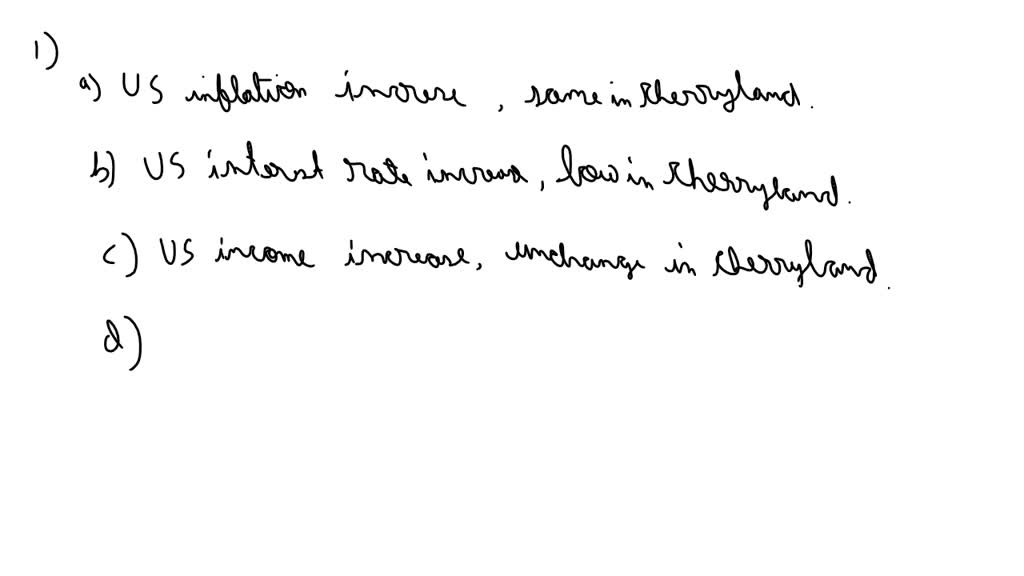 1)
a) US inflation increse, same in Kherryland.
b) US interst rate increas, low in Kherryland.
c) US income increase, unchange in Cherryland.
d)